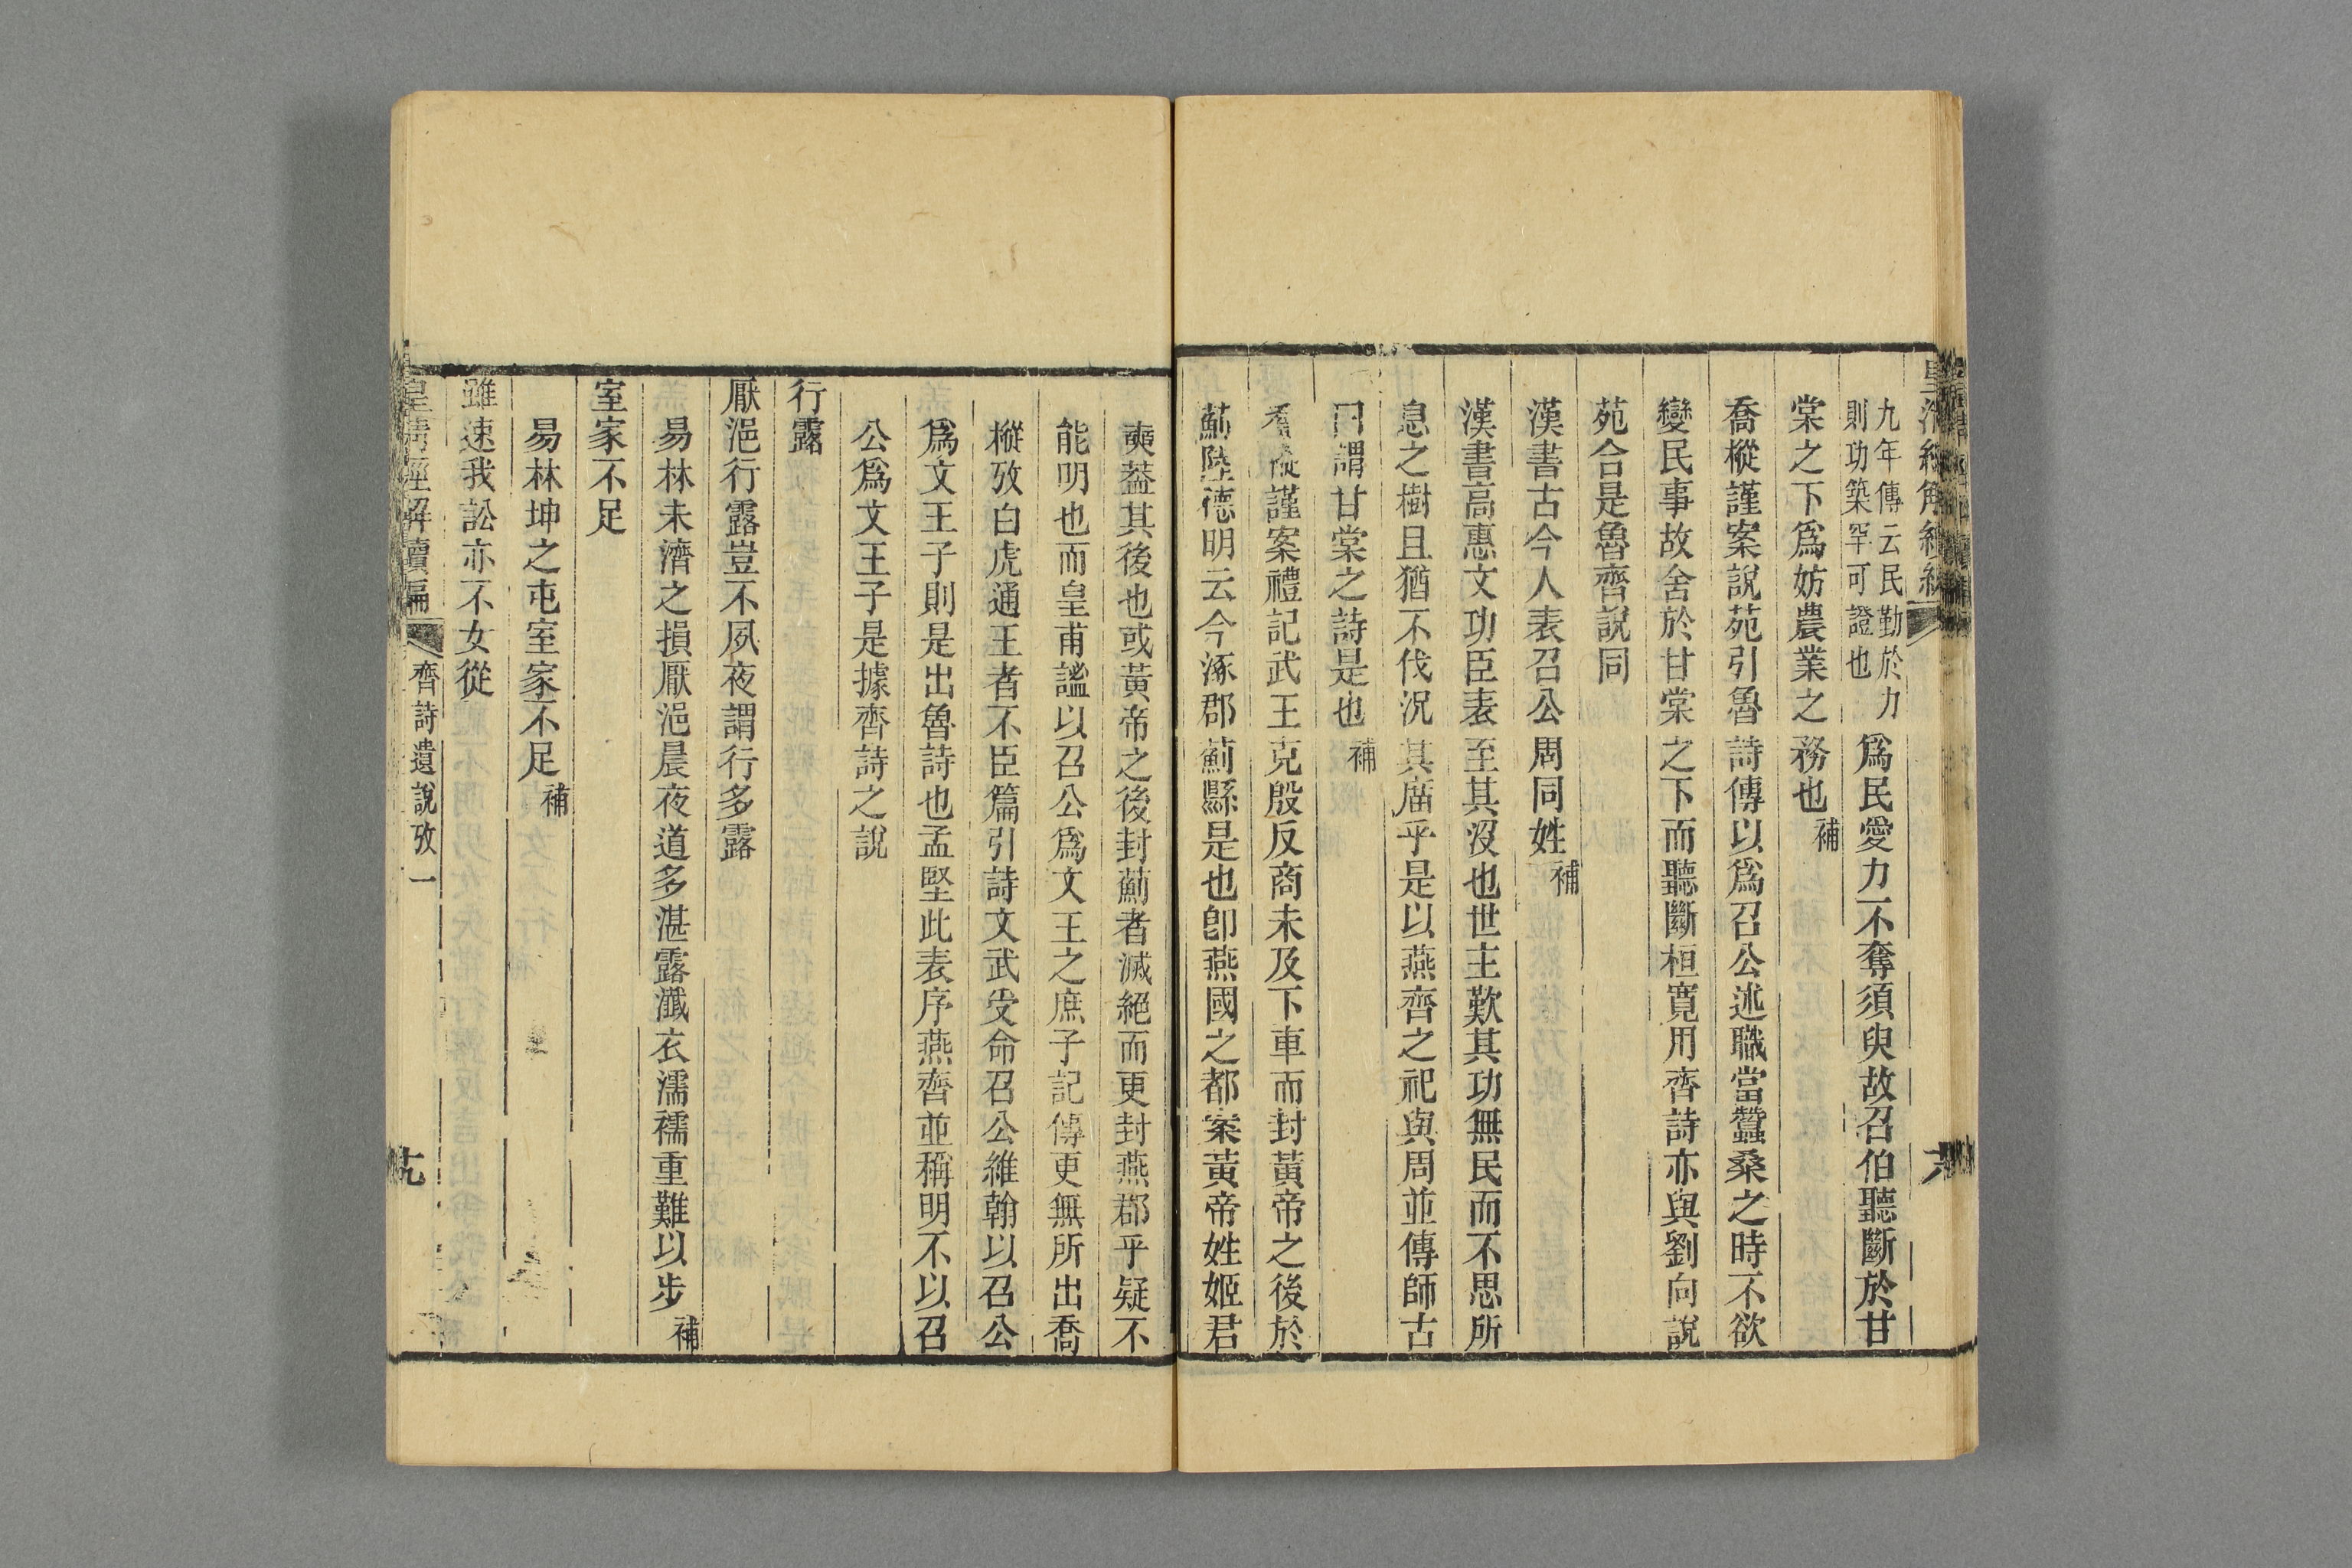 九年傳云民勤於力
則功築罕可證也
爲民愛力不奪須臾故召伯聽斷於甘
棠之下爲妨農業之務也補
喬樅謹案說苑引魯詩傳以爲召公述職當蠶桑之時不欲
變民事故舍於甘棠之下而聽斷桓寬用齊詩亦與劉向說
苑合是魯齊說同
漢書古今人表召公周同姓補
漢書高惠文功臣表至其沒也世主歎其功無民而不思所
息之樹且猶不伐況其廟乎是以燕齊之祀與周並傳師古
曰謂甘棠之詩是也補
喬樅謹案禮記武王克殷反商未及下車而封黃帝之後於
薊陸德明云今涿郡薊縣是也卽燕國之都案黃帝姓姬君
奭蓋其後也或黃帝之後封薊者滅絕而更封燕郡乎疑不
能明也而皇甫謐以召公爲文王之庶子記傳更無所出喬
樅攷白虎通王者不臣篇引詩文武受命召公維翰以召公
爲文王子則是出魯詩也孟堅此表序燕齊並稱明不以召
公爲文王子是據齊詩之說
行露
厭浥行露豈不夙夜謂行多露
易林未濟之損厭浥晨夜道多湛露瀸衣濡襦重難以步補
室家不足
易林坤之屯室家不足補
雖速我訟亦不女從
皇清經解續編
齊詩遺說攷一
十九